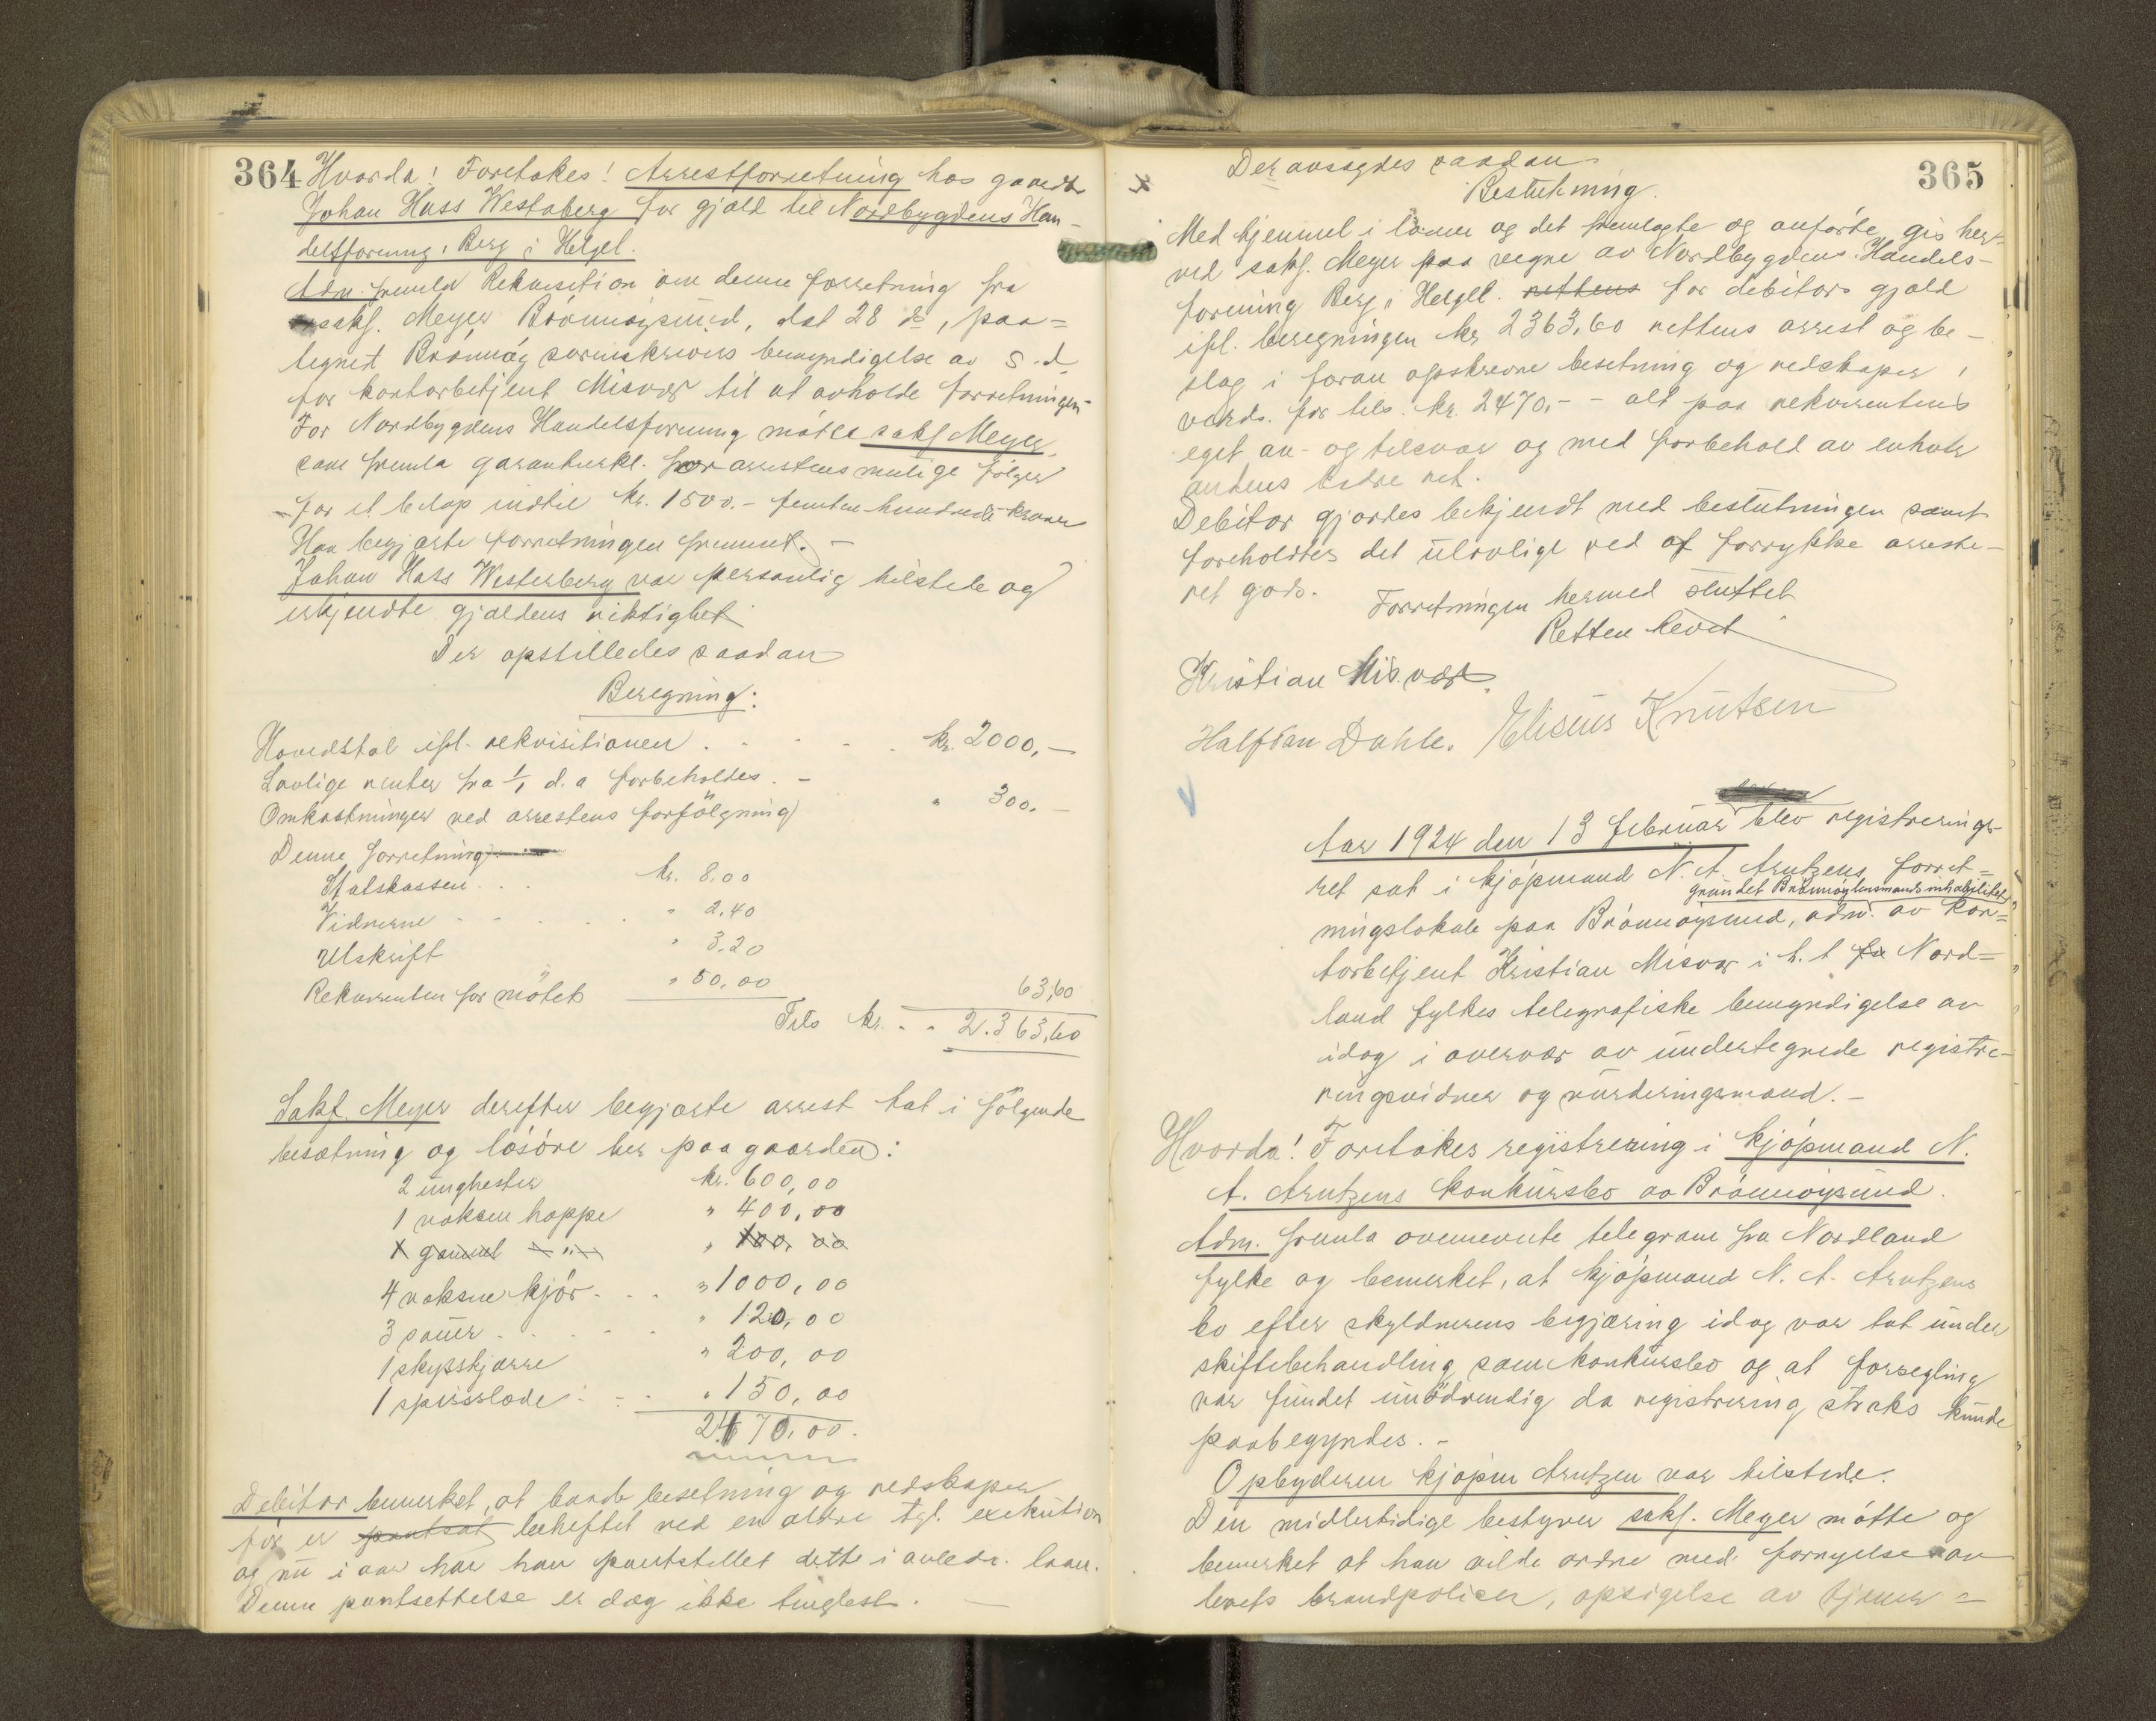 364 Hvorda! Foretokes! Arrestforretning hos gaardbr
Johan Hass Westaberg for gjæld til Nordbygdens Han-
delsforening, Berg i Helgel.
Adm. fremla Rekvisition om denne forretning fra
sakf. Meyer Brönnöysund, dat 28 ds, paa=
tegnet Brönnöy sorenskrivers bemyndigelse av s.d.
for kontorbetjent Misvær til at avholde forretningen
For Nordbygdens Handelsforening mötte sakf Meyer,
som fremla garantierkl. for arrestens mulige fölger
for et belöp indtil kr. 1500.- femten hundrede kroner
Han begjærte forretningen fremmet. -
Johan Hass Westerberg var personlig tilstede og
erkjendte gjældens riktighet
Der opstilledes saadan
Beregning:
Hovedstol ifl. rekvisitionen . . . . . kr. 2000,-
Lovlige renter fra 1/1 d.a forbeholdes. -
Omkostninger ved arrestens forfölgning " 300.-
Denne forretning
Statskassen . . . kr. 8.00
Vidnerne . . . . " 2,40
Utskrift " 3.20
Rekvirenten for mötet " 50,00 63,60
Tils kr. . . 2.363,60
Sakf. Meyer derefter begjærte arrest tat i fölgende
besætning og lösöre her paa gaarden:
2 unghester kr. 600,00
1 voksen hoppe " 400,00
1 gammel - " - " 100,00
4 voksne kjör . . . " 1000,00
3 sauer . . . . . " 120,00
1 skysskjærre " 200,00
1 spisslæde . . . " 150,00
2470,00.
Debitor bemerket, at baade besetning og redskaper
för er pantsat beheftet ved en ældre tgl. exekution
og nu i aar har han pantstillet dette i anledn. laan.
Denne pantsettelse er dog ikke tinglest. -
365
Der avsagdes saadan
Beslutning.
Med hjemmel i loven og det fremlagte og anförte gis her-
ved sakf. Meyer paa vegne av Nordbygdens Handels-
forening Berg i Helgel. rettens for debitors gjæld
ifl. beregningen kr 2363,60 rettens arrest og be-
slag i foran opskrevne besetning og redskaper,
værds. for tils. kr. 2470.- - alt paa rekvirentens
eget an- og tilsvar og med forbehold av enhver
andens bedre ret.
Debitor gjordes bekjendt med beslutningen samt
foreholdtes det ulovlige ved at forrykke arreste-
ret gods. Forretningen hermed sluttet
Retten hevet
Kristian Misvær.
Halfdan Dahle. Eliseus Knutsen
Aar 1924 den 13 februar blev registrerings-
ret sat i kjöpmand N. A. Arntzens forret=
grundet Brönnöylensmands inhabilitet
ningslokale paa Brönnöysund, adm. av kon=
torbetjent Kristian Misvær i h. t fra Nord=
land fylkes telegrafiske bemyndigelse av
idag i overvær av undertegnede registre-
ringsvidner og vurderingsmænd. -
Hvorda! Foretokes registrering i kjöpmand N.
A. Arntzens konkursbo av Brönnöysund.
Adm. fremla ovennevnte telegram fra Nordland
fylke og bemerket, at kjöpmand N. A. Arntzens
bo efter skyldnerens begjæring idag var tat under
skiftebehandling som konkursbo og at forsegling
var fundet unödvendig da registrering straks kunde
paabegyndes. -
Opbyderen kjöpm Arntzen var tilstede.
Den midlertidige bestyrer sakf. Meyer mötte og
bemerket at han vilde ordne med fornyelse av
boets brandpoliser, opsigelse av tjener=